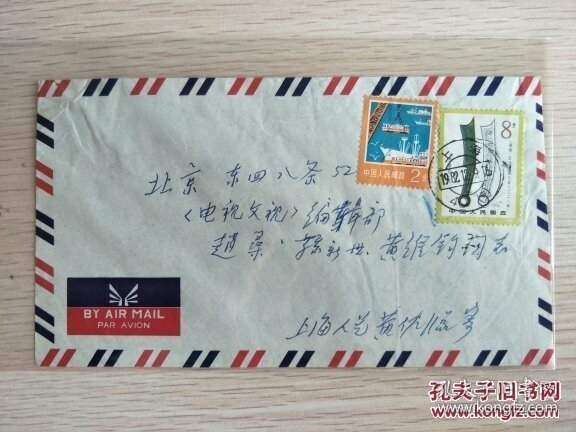 8分
2
中国人民邮政
中国人民邮政
上
1982.12
北京 东四八条52
《电视文视》编辑部
赵桑、孙新世 黄维钧同志
上海人艺 黄佐临寄
BY AIR MAIL
PAR AVION
孔夫子旧书网
www.kongfz.com